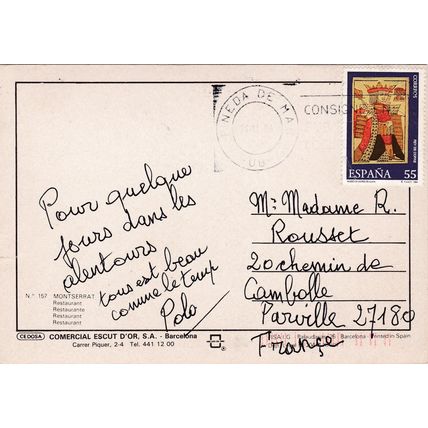 Pour quelque
jours dans les
alentours
tous est beau
comme le temp
Polo
N.° 157 MONTSERRAT
Restaurant
Restaurante
Restaurant
Restaurant
CEDOSA
COMERCIAL ESCUT D'OR, S.A. - Barcelona
Carrer Piquer, 2-4 Tel. 441 12 00
NEDA DE MA
CONSIG
CORREOS
ESPAÑA 55
Mr Madame R.
Rousset
20 chemin de
Cambolle
Parville 27180
França
Barcelona - Printed in Spain